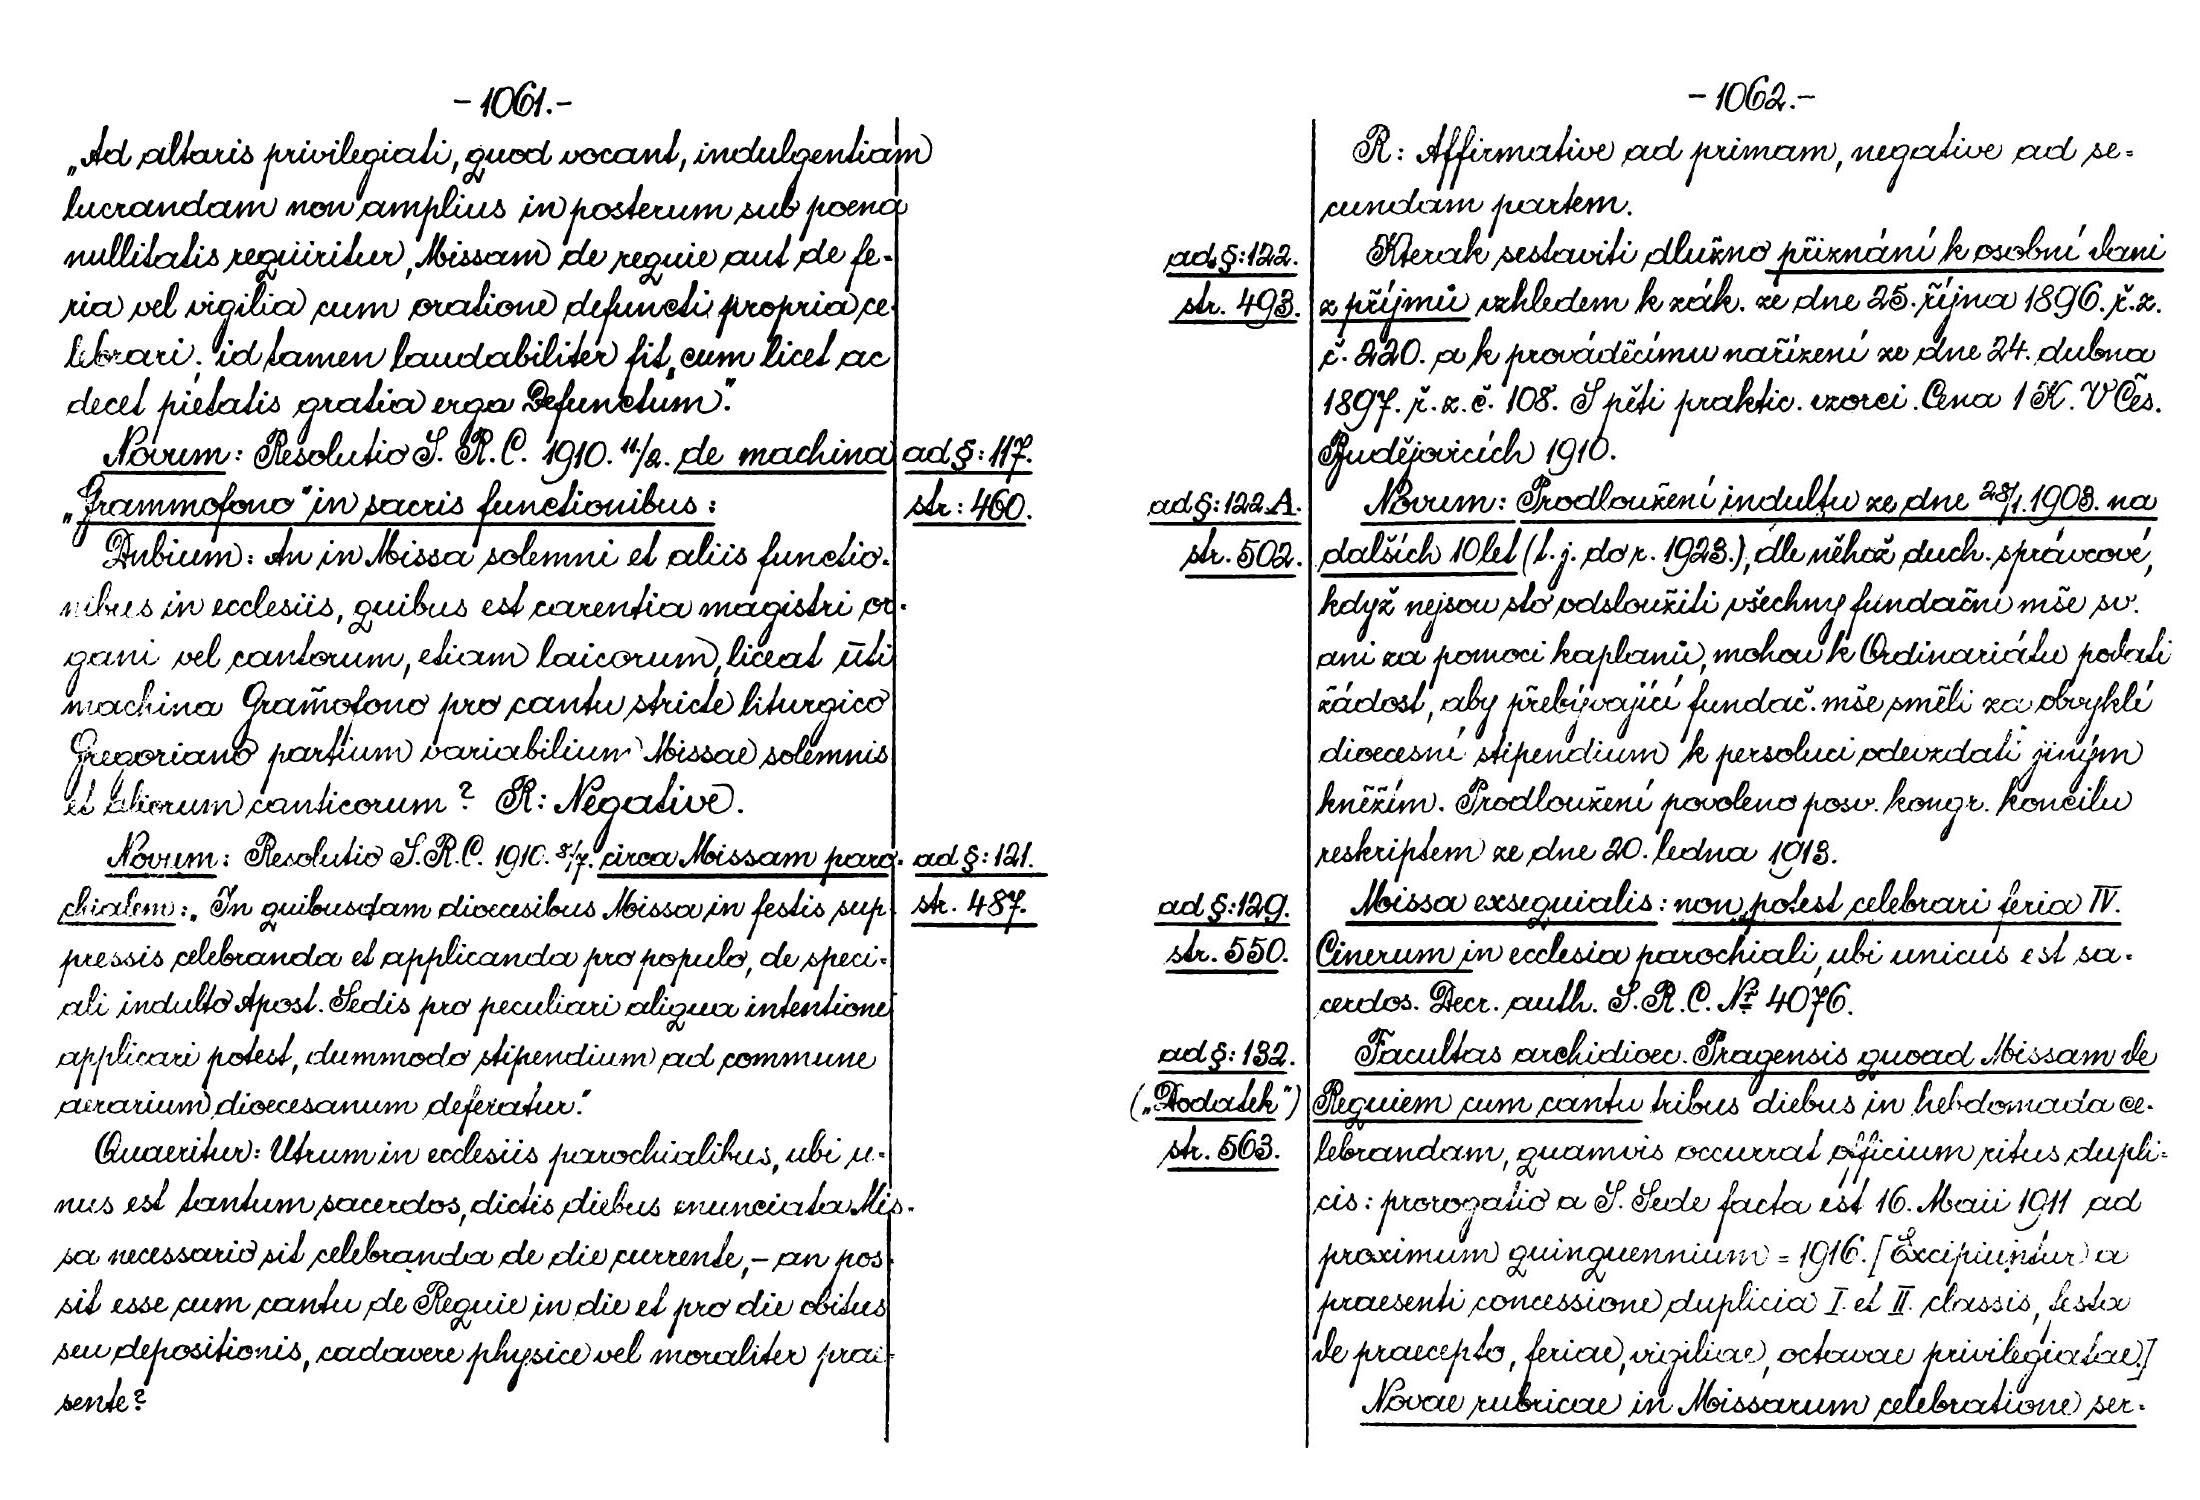 - 1061. -
„Ad altaris privilegiati, quod vocant, indulgentiam
lucrandam non amplius in posterum sub poena
nullitatis requiritur, Missam de requie aut de fe-
ria vel vigilia cum oratione defuncti propria ce-
lebrari. id tamen laudabiliter fit, cum licet ac
decet pietatis gratia erga Defunctum."
Novum: Resolutio S. R. C. 1910. 11/2. de machina
ad §: 117.
„Grammofono" in sacris functionibus:
str: 460.
Dubium: An in Missa solemni et aliis functio-
nibus in ecclesiis, quibus est carentia magistri or-
gani vel cantorum, etiam laicorum, liceat ūti
machina Gram̃ofono pro cantu stricte liturgico
Gregoriano partium variabilium Missae solemnis
et aliorum canticorum? R: Negative.
Novum: Resolutio S. R. C. 1910. 8/7. circa Missam paro-
ad §: 121.
chialem: „In quibusdam dioecesibus Missa in festis sup-
str. 487.
pressis celebranda et applicanda pro populo, de speci-
ali indulto Apost. Sedis pro peculiari aliqua intentione
applicari potest, dummodo stipendium ad commune
aerarium dioecesanum deferatur."
Quaeritur: Utrum in ecclesiis parochialibus, ubi u-
nus est tantum sacerdos, dictis diebus enunciata Mis-
sa necessario sit celebranda de die currente, - an pos-
sit esse cum cantu de Requie in die et pro die obitus
seu depositionis, cadavere physice vel moraliter prae-
sente?
- 1062. -
R: Affirmative ad primam, negative ad se-
cundam partem.
ad §: 122.
Kterak sestaviti dlužno přiznání k osobní dani
str. 493.
z příjmů vzhledem k zák. ze dne 25. října 1896. ř. z.
č. 220. a k prováděcímu nařízení ze dne 24. dubna
1897. ř. z. č. 108. S pěti praktic. vzorci. Cena 1 K. V Čes.
Budějovicích 1910.
ad §: 122. A.
Novum: Prodloužení indultu ze dne 28/1. 1903. na
str. 502.
dalších 10 let (t. j. do r. 1923.), dle něhož duch. správcové,
když nejsou sto odsloužiti všechny fundační mše sv.
ani za pomoci kaplanů, mohou k Ordinariátu podati
žádost, aby přebývající fundač. mše směli za obvyklé
dioecesní stipendium k persoluci odevzdati jiným
kněžím. Prodloužení povoleno posv. kongr. koncilu
reskriptem ze dne 20. ledna 1913.
ad §: 129.
Missa exsequialis: non potest celebrari feria IV.
str. 550.
Cinerum in ecclesia parochiali, ubi unicus est sa-
cerdos. Decr. auth. S. R. C. Nr. 4076.
ad §: 132.
Facultas archidioec. Pragensis quoad Missam de
(„Dodatek")
Requiem cum cantu tribus diebus in hebdomada ce-
str. 563.
lebrandam, quamvis occurrat officium ritus dupli-
cis: prorogatio a S. Sede facta est 16. Maii 1911 ad
proximum quinquennium = 1916. [Excipiuntur a
praesenti concessione duplicia I. et II. classis, festa
de praecepto, feriae, vigiliae, octavae privilegiatae.]
Novae rubricae in Missarum celebratione ser-